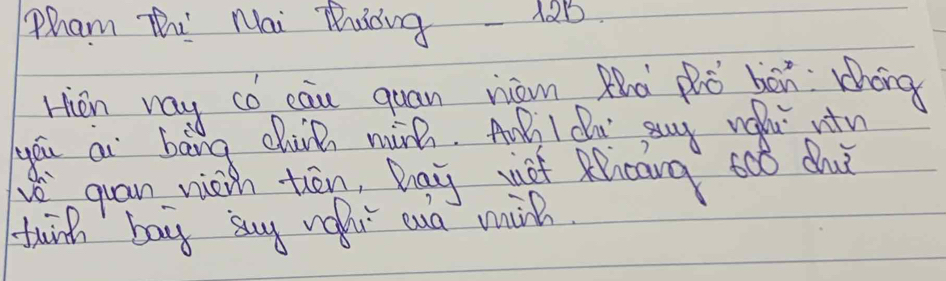 Phạm Thị Mai Thương - 12B.
Hiện nay có câu quan niệm khá phổ biến: Không
yêu ai bằng chính mình. Anh/chị suy nghĩ ntn
về quan niệm trên, hãy viết khoảng 600 chữ
trình bày suy nghĩ của mình.